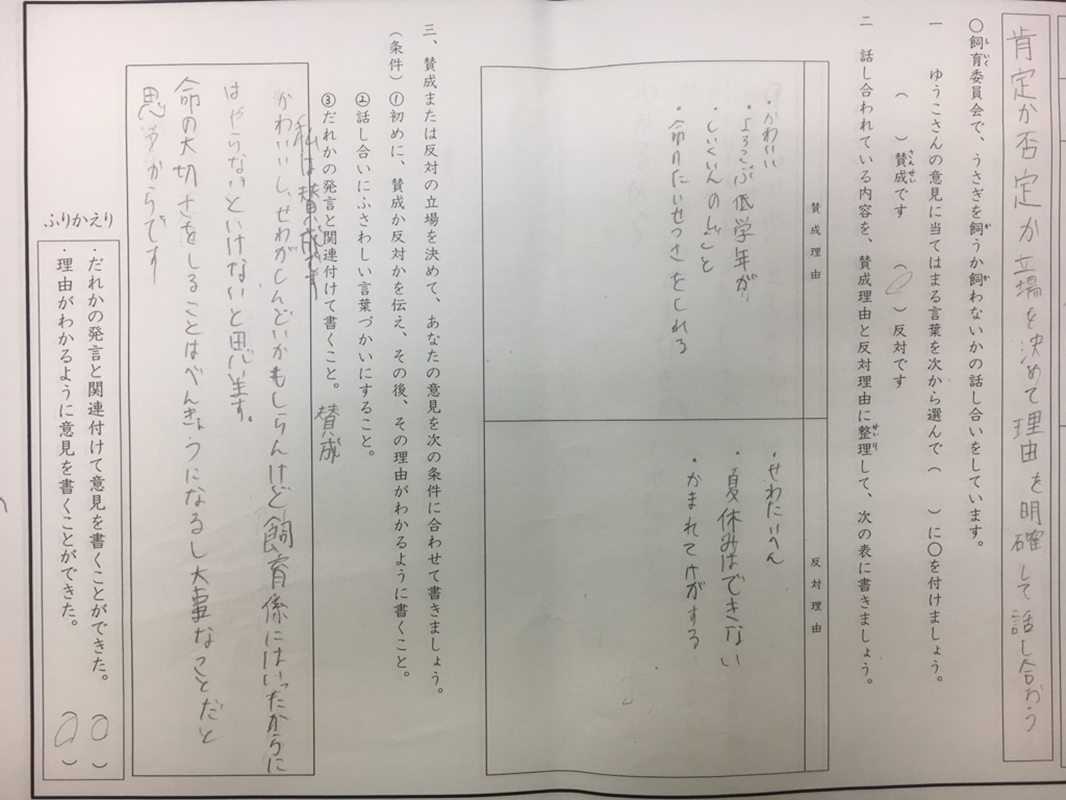 肯定か否定か立場を決めて理由を明確して話し合おう
○飼育委員会で、うさぎを飼うか飼わないかの話し合いをしています。
一 ゆうこさんの意見に当てはまる言葉を次から選んで（ ）に○を付けましょう。
（ ）賛成です （○）反対です
二 話し合われている内容を、賛成理由と反対理由に整理して、次の表に書きましょう。
賛成理由
・かわいい
・よろこぶ低学年が
・しいくいんのしごと
・命のたいせつさをしれる
反対理由
・せわたいへん
・夏休みはできない
・かまれてけがする
三、賛成または反対の立場を決めて、あなたの意見を次の条件に合わせて書きましょう。
（条件）①初めに、賛成か反対かを伝え、その後、その理由がわかるように書くこと。
②話し合いにふさわしい言葉づかいにすること。
③だれかの発言と関連付けて書くこと。 賛成
私は賛成です
かわいいし、せわがしんどいかもしらんけど飼育係にはいったからに
はやらないといけないと思います。
命の大切さをしることはべんきょうになるし大事なことだと
思うからです
ふりかえり
・だれかの発言と関連付けて意見を書くことができた。（○）
・理由がわかるように意見を書くことができた。（○）